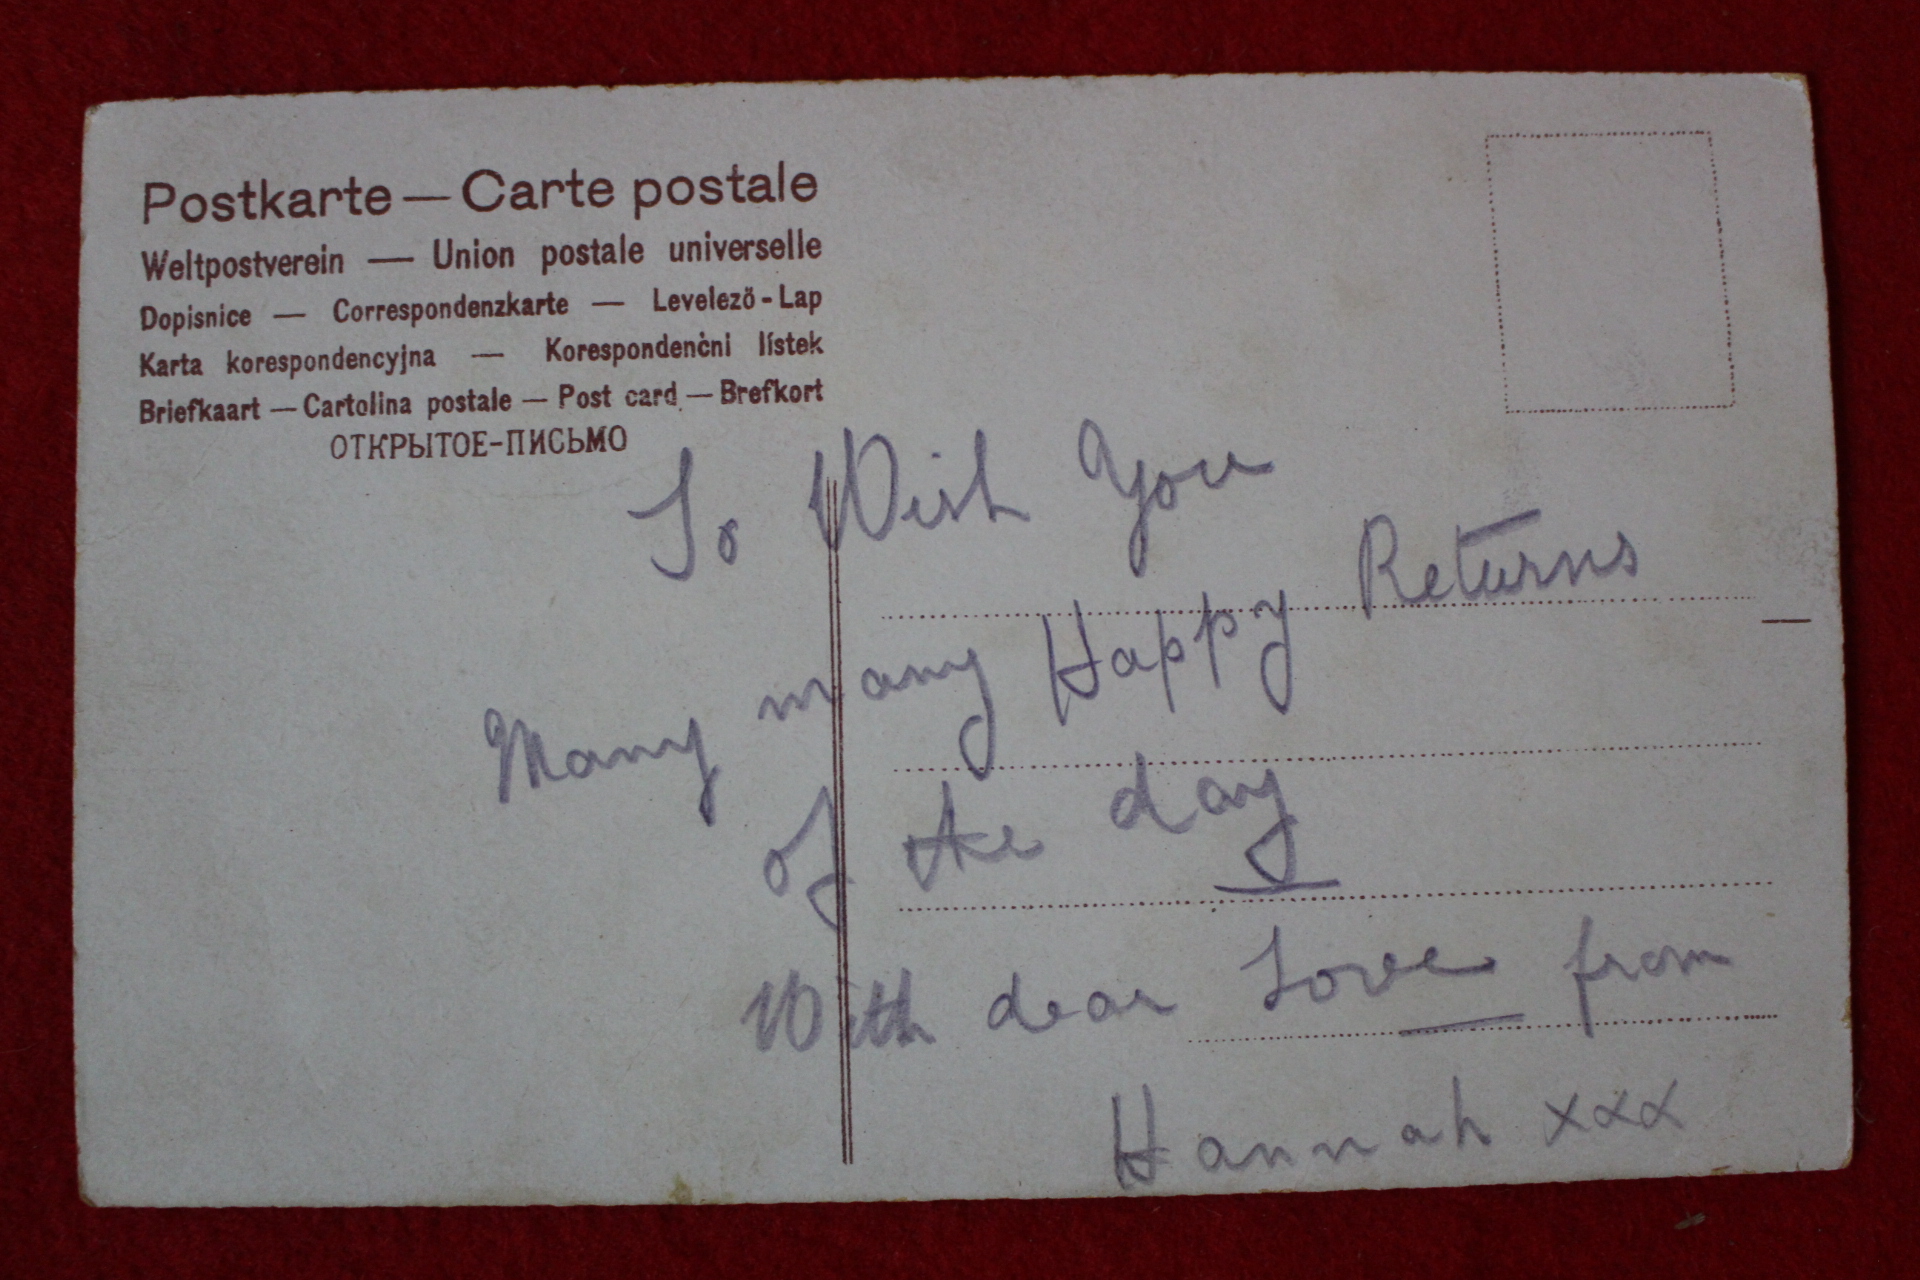 Postkarte — Carte postale
Weltpostverein — Union postale universelle
Dopisnice — Correspondenzkarte — Levelező-Lap
Karta korespondencyjna — Korespondenčni lístek
Briefkaart — Cartolina postale — Post card — Brefkort
ОТКРЫТОЕ-ПИСЬМО
To Wish You
Many many Happy Returns
of the day
With dear Love from
Hannah xxx